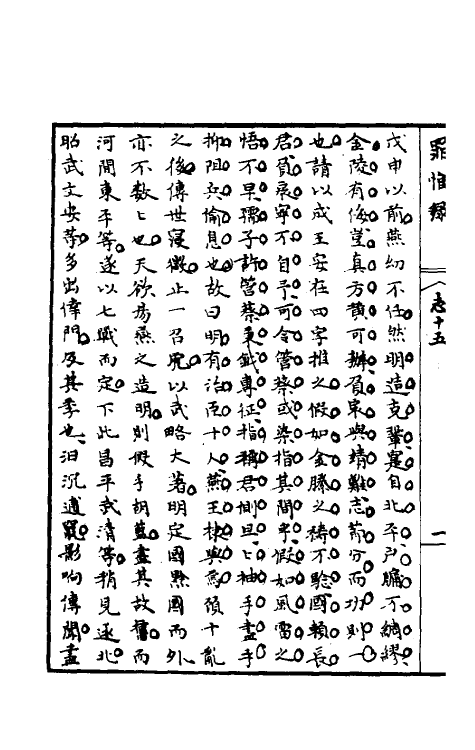 罪惟錄
志十五
一
戊申以前燕幼不任然明造克鞏寔自北平戶牖不綢繆
金陵有俟豈真方黃可辦負扆與靖難志節分而功則一
也請以成王安在四字推之假如金縢之禱不驗國賴長
君負扆寧不自予可令管蔡或染指其間乎假如風雷之
悟不早孺子訴管蔡秉鉞專征指稱君側旦旦袖手盡手
抑阻兵愉息也故曰明有治臣十人燕王棣與焉殞十亂
之後傳世寢微止一召虎以武略大著明定國黔國而外
亦不數數也天欲昜燕之造明則假手胡藍盡其故舊而
河間東平等遂以七戰而定下此昌平武清等稍見逐北
昭武文安等多出倖門及其季也汩沉逋竄影响傳聞盡